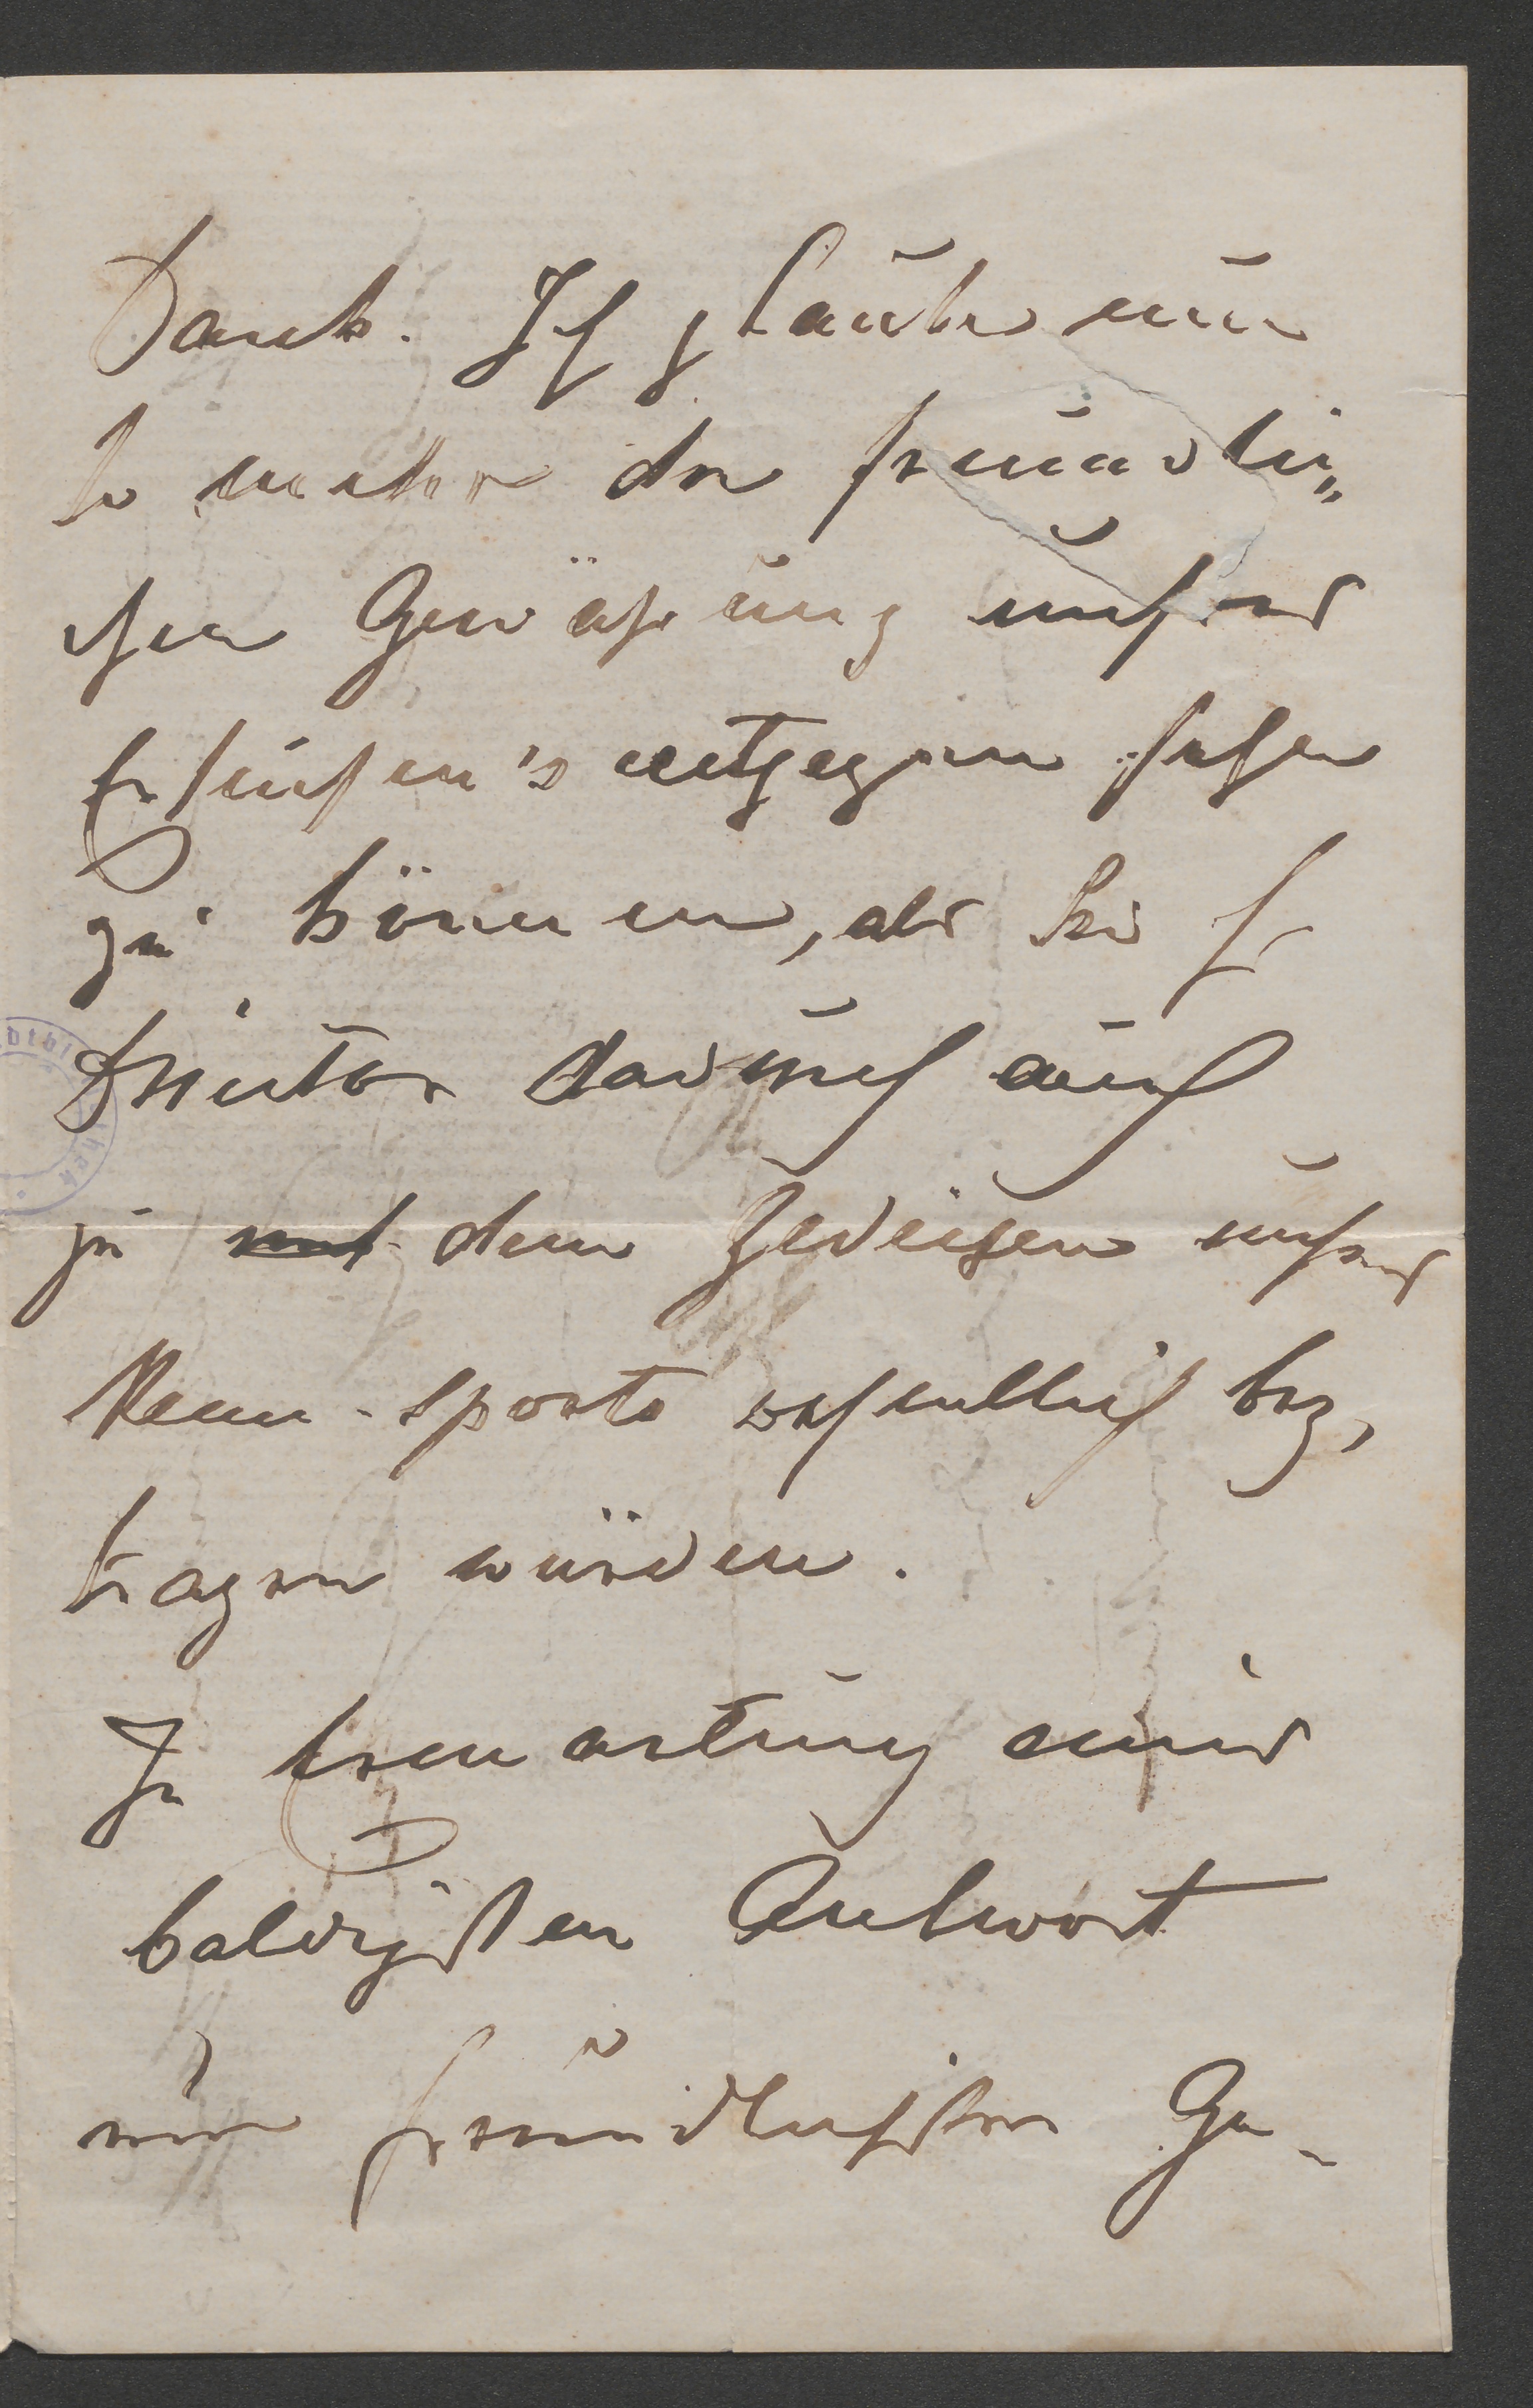 Dank. Ich glaube um
so mehr der freundli„
chen Gewährung unsres
Ersuchen's entgegen sehen
zu können, als Sie H
Direktor dadurch auch
zu dem Gedeihen unsres
Renn-sports wesentlich bey,
tragen würden.
In Erwartung einer
baldigsten Antwort
mit freundlichsten Ge-